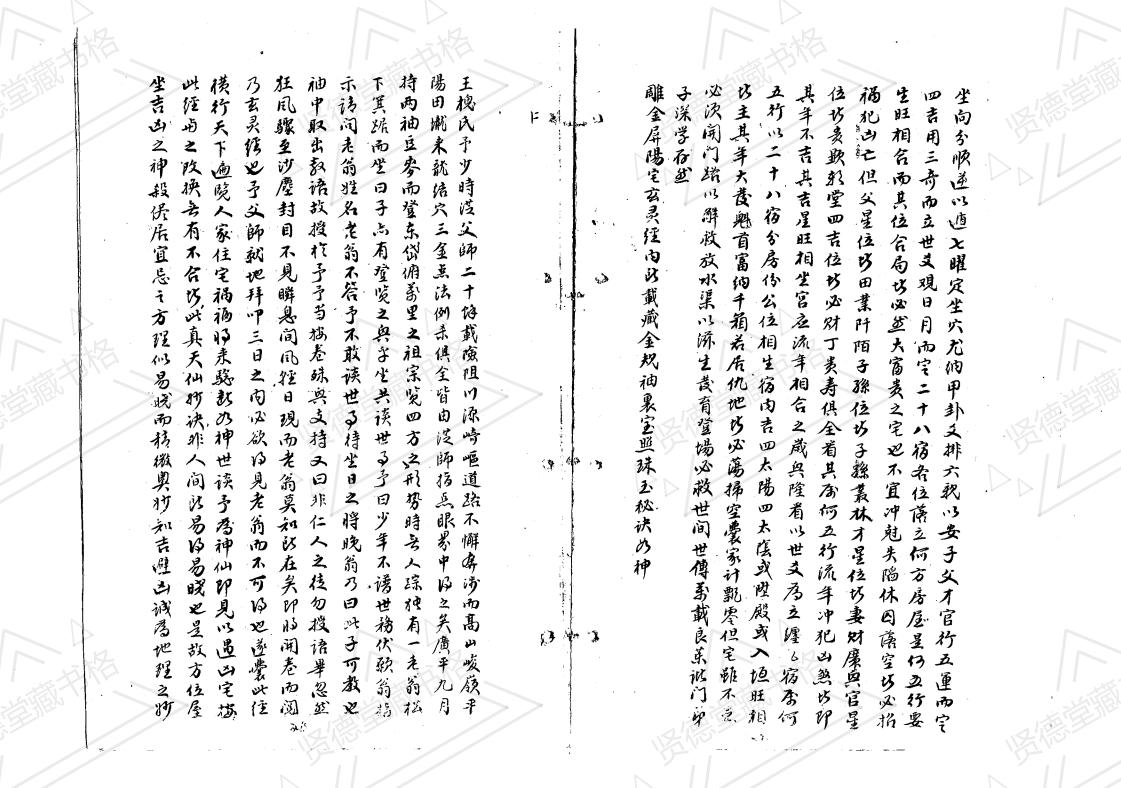 坐向分順逆以遁七曜定坐穴尤納甲卦爻排六親以安子父才官行五運而定
四吉用三奇而立世爻觀日月而定二十八宿各位落立何方房屋是何五行要
生旺相合而其位合局皆必然大富貴之宅也不宜冲尅失陷休囚落空皆必招
禍犯凶亡但父星位皆田業阡陌子孫位皆子孫叢林才星位皆妻財廉與官星
位皆貴欺朝堂四吉位皆必財丁貴壽俱全看其屬何五行流年冲犯凶煞皆即
其年不吉其吉星旺相坐宮应流年相合之歲興隆看以世爻為立躔以宿屬何
五行以二十八宿分房份公位相生宿内吉四太陽四太陰或陞殿或入垣旺相
皆主其年大發魁首富納千箱若居仇地皆必蕩掃空囊家計飄零但宅雖不忌
必須開門路以解救放水渠以滌生發育登場必救世間世傳萬載良策
子深学存然
雕金屏陽宅玄灵經内所載藏金規袖裏宝照珠玉秘诀如神
王槐民予少時從父師二十餘載強阻川源崎嶇道路不懈奔涉而高山峻嶺平
陽田瀧来龍结穴三金点法例条俱全皆由從師指点眼界中得之矣廣平九月
持两袖豆麥而登东岱俯萬里之祖宗览四方之形势時無人踪独有一老翁松
下箕踞而坐曰子亦有登览之興乎坐共談世事予曰少年不谙世務伏願翁指
示請问老翁姓名老翁不答予不敢谈世事待坐日之將晚翁乃曰此子可教也
袖中取出数語故授於予予当接卷殊與支持又曰非仁人之徒勿授語畢忽然
狂風驟至沙塵封目不見瞬息间風輕日現而老翁莫知所在矣即將開卷而阅
乃玄灵经也予父師就地拜叩三日之内必欲得見老翁而不可得也遂囊此经
橫行天下遍览人家住宅禍福將来驗默如神世谈予為神仙即見以遇凶宅按
此经与之改换無有不合皆此真天仙妙诀非人间所易得易晓也是故方位屋
坐吉凶之神殺儘居宜忌之方理似易晓而精微奥妙知吉避凶诚為地理之妙